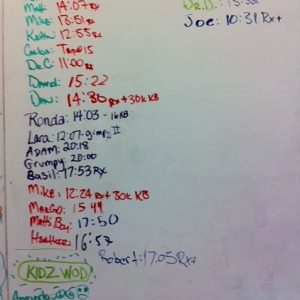 Matt: 14:07 Rx
Mike: 13:51 Rx
Keith: 12:55 Rx
Dr.C: 11:00 Rx
David: 15:22
Dan: 14:36 Rx + 30k KB
Ronda: 14:03 - 16KB
Lara: 12:07 - gimpy II
ADAM: 20:18
Grumpy: 20:00
Basil: 17:53 Rx
Mike: 12:24 Rx + 30k KB
MarGo: 15:49
Matt's Boy: 17:50
Heather: 16:57
Robert: 17:05 Rx
KIDZ WOD
Amanda
Wr.D.: 15:32
Joe: 10:31 Rx+